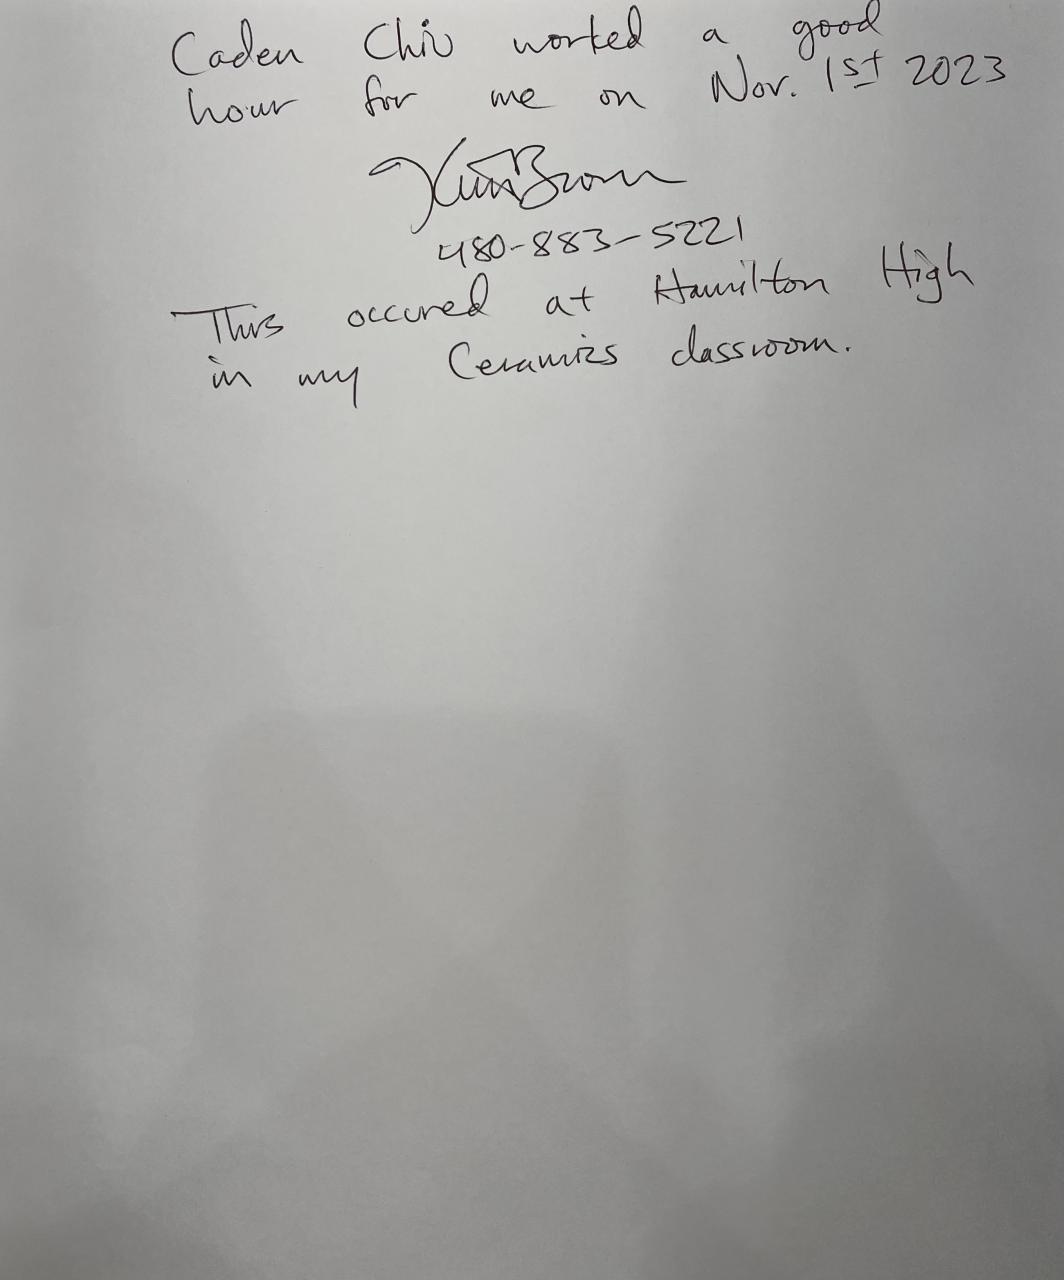 Caden Chiu worked a good
hour for me on Nov. 1st 2023
Brown
480-883-5221
This occured at Hamilton High
in my Ceramics classroom.